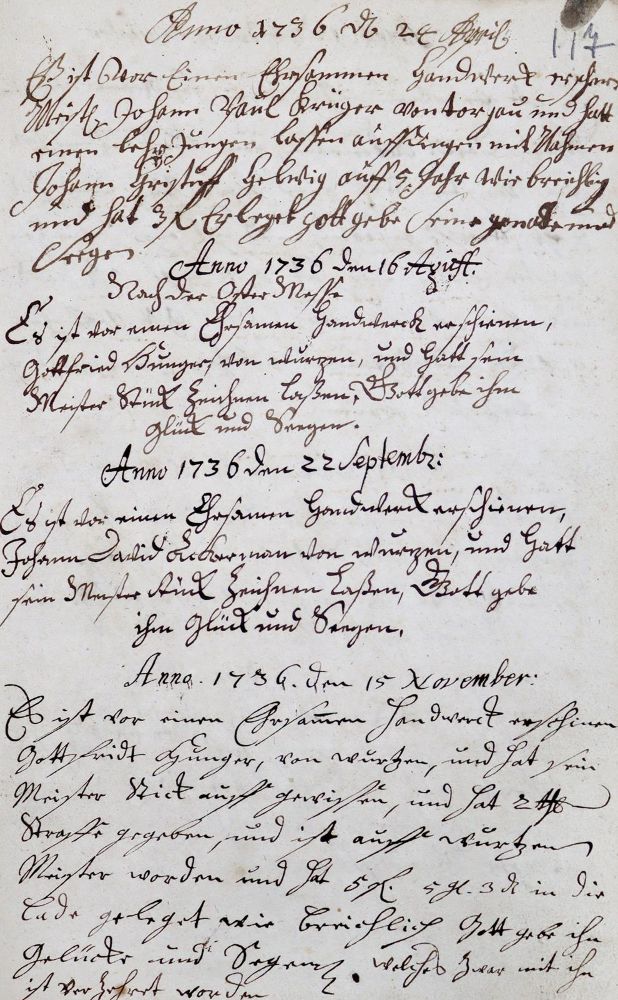 Anno 1736 d 24 April
117
Es ist vor Einen Ehrsammen Handwerk erschin
Meist Johann Paul Krüger von torgau und hatt
einen lehr Jungen lassen auffdingen mit Nahmen
Johann Cristuff Helwig auff 5 Jahr wie breichlig
und hat 3 Erleget gott gebe seine genade und
Seegen
Anno 1736 den 16 August.
Nach der Oster Messe
Es ist vor einen Ehrsamen Handwerck erschienen,
Gottfried Hunger, von wurzen, und hatt sein
Meister Stück Zeichnen laßen, Gott gebe ihm
Glück und Seegen.
Anno 1736 den 22 Septembr:
Es ist vor einen Ehrsamen Handwerck erschienen,
Johann David Ackerman von wurzen, und hatt
sein Meister stück Zeichnen laßen, Gott gebe
ihm Glück und Seegen.
Anno. 1736. den 15 November:
Es ist vor einen Ersamen Handwerck erschinen
Gottfridt Hunger, von wurtzen, und hat sein
Meister Stick auff gewissen, und hat 2
Straffe gegeben, und ist auff wurtzen
Meister worden und hat 5 fl. 5 gl. 3 d in die
lade geleget wie breichlich Gott gebe ihn
Gelücke und Segen. welches Zwar mit ihn
ist ver Zehret worden